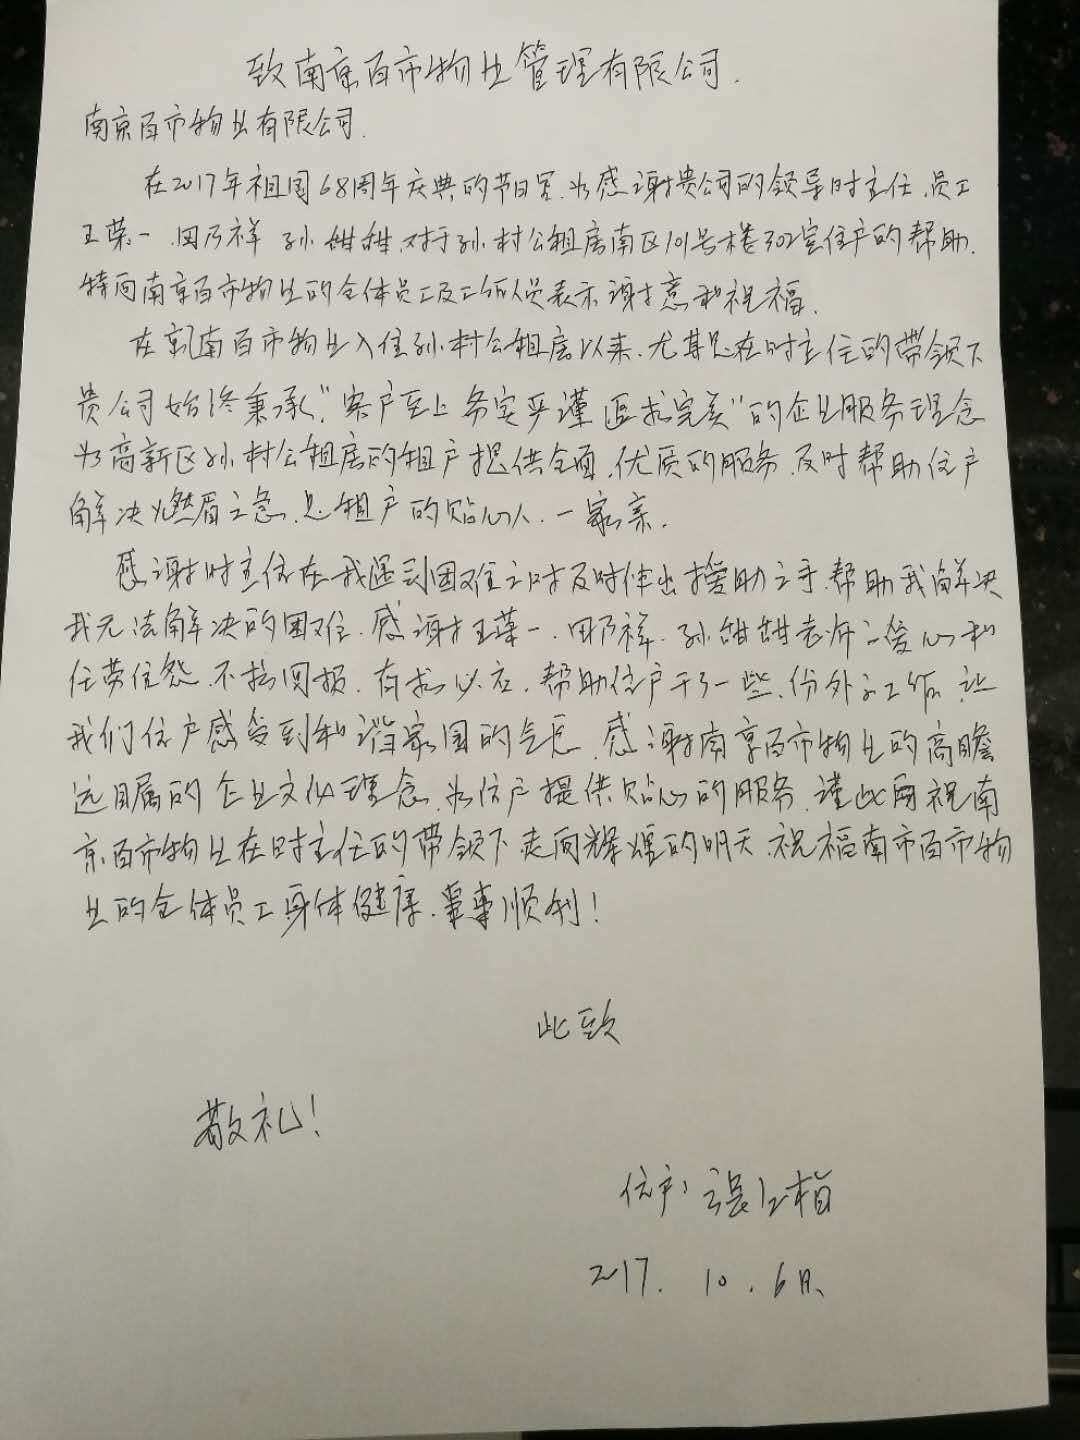 致南京百市物业管理有限公司.
南京百市物业有限公司.
在2017年祖国68周年庆典的节日里.为感谢贵公司的领导时主任.员工
王荣一.田乃祥 孙甜甜.对于孙村公租房南区101号楼302室住户的帮助.
特向南京百市物业的全体员工及工作人员表示谢意和祝福.
在南百市物业入住孙村公租房以来.尤其是在时主任的带领下
贵公司始终秉承"客户至上 务实严谨 追求完美"的企业服务理念
为高新区孙村公租房的租户提供全面.优质的服务.及时帮助住户
解决燃眉之急.是租户的贴心人.一家亲.
感谢时主任在我遇到困难之时及时伸出援助之手.帮助我解决
我无法解决的困难.感谢王荣一.田乃祥.孙甜甜爱心和
任劳任怨.不求回报.有求必应.帮助住户干了一些.份外之工作.让
我们住户感受到和谐家园的气息.感谢南京百市物业的高瞻
远瞩的企业文化理念.为住户提供贴心的服务.谨此再祝南
京百市物业在时主任的带领下.走向辉煌的明天.祝福南市百市物
业的全体员工身体健康.事事顺利!
此致
敬礼!
住户:张
2017.10.6日.